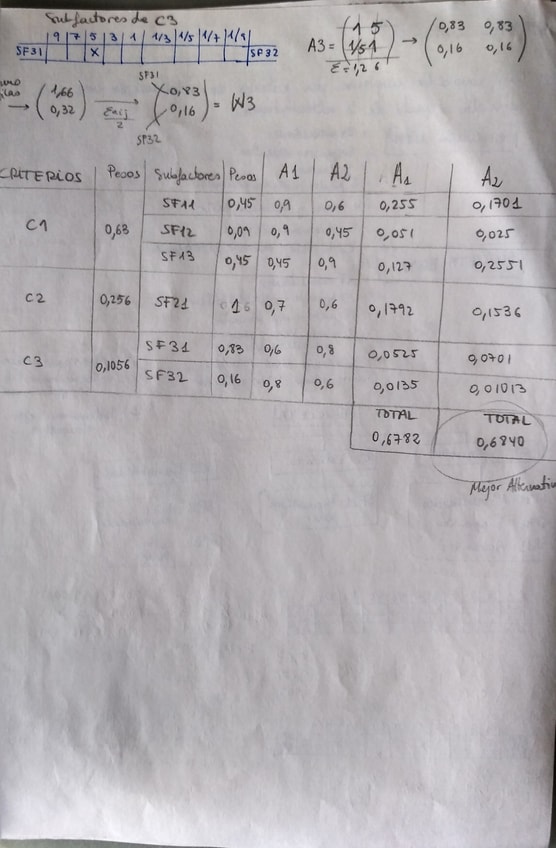 Subfactores de C3
9 7 5 3 1 1/3 1/5 1/7 1/9
SF31 X SF32
A3 = (1 5) → (0,83 0,83)
(1/5 1) (0,16 0,16)
Σ = 1,2 6
→ (1,66) → (0,83) = W3
(0,32) (0,16)
SF31
SF32
2
CRITERIOS Pesos Subfactores Pesos A1 A2 A1 A2
C1 0,63 SF11 0,45 0,9 0,6 0,255 0,1701
SF12 0,09 0,9 0,45 0,051 0,025
SF13 0,45 0,45 0,9 0,127 0,2551
C2 0,256 SF21 1 0,7 0,6 0,1792 0,1536
C3 0,1056 SF31 0,83 0,6 0,8 0,0525 0,0701
SF32 0,16 0,8 0,6 0,0135 0,01013
TOTAL TOTAL
0,6782 0,6840
Mejor